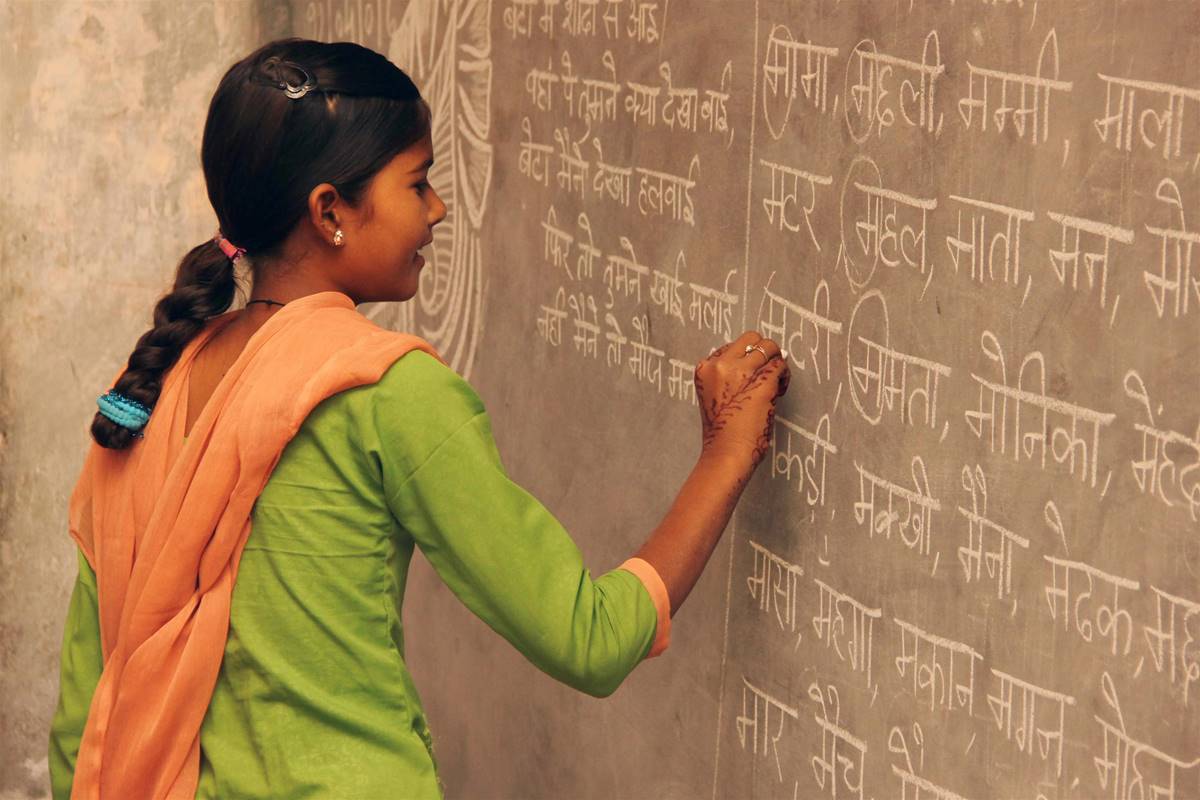 बेटा मैं शादी से आई
वहां पे तुमने क्या देखा वाई,
बेटा मैंने देखा हलवाई
फिर तो तुमने खाई मलाई
नहीं मैंने तो मौज मन
मामा, मछली, मम्मी, माला
मटर, महल, माता, मन,
मटरी, ममता, मोनिका,
मकड़ी, मक्खी, मैना, मेढक,
मासा, महंगा, मकान, मगन,
मार, मैच